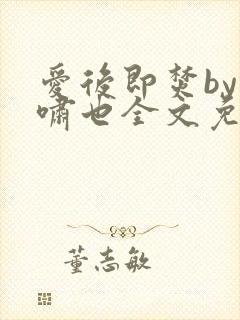 愛後即焚by
嘯也全文免
董志敏